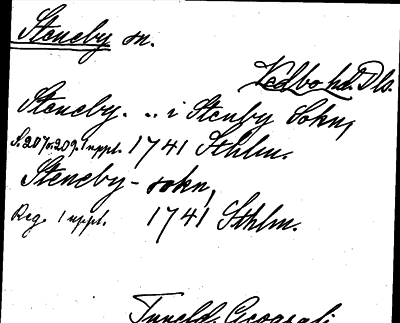 Steneby sn.
Vedbo hd. Dls.
Steneby. .. i Stenby Sokn,
S. 207 o. 209. 1 uppl. 1741 Sthlm.
Steneby-sokn,
Reg. 1 uppl. 1741 Sthlm.
Tuneld, Geografi